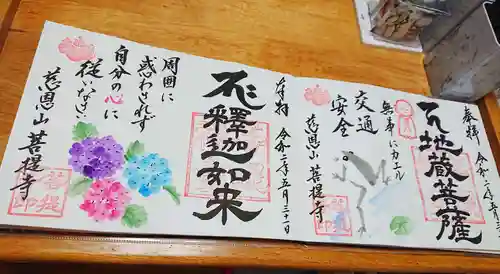 奉拝
令和二年五月三
地蔵菩薩
無事にカエル
交通
安全
慈恩山 菩提寺
奉拝 令和二年五月三十一日
釋迦如来
周囲に
惑わされず
自分の心に
従いなさい
慈恩山 菩提寺